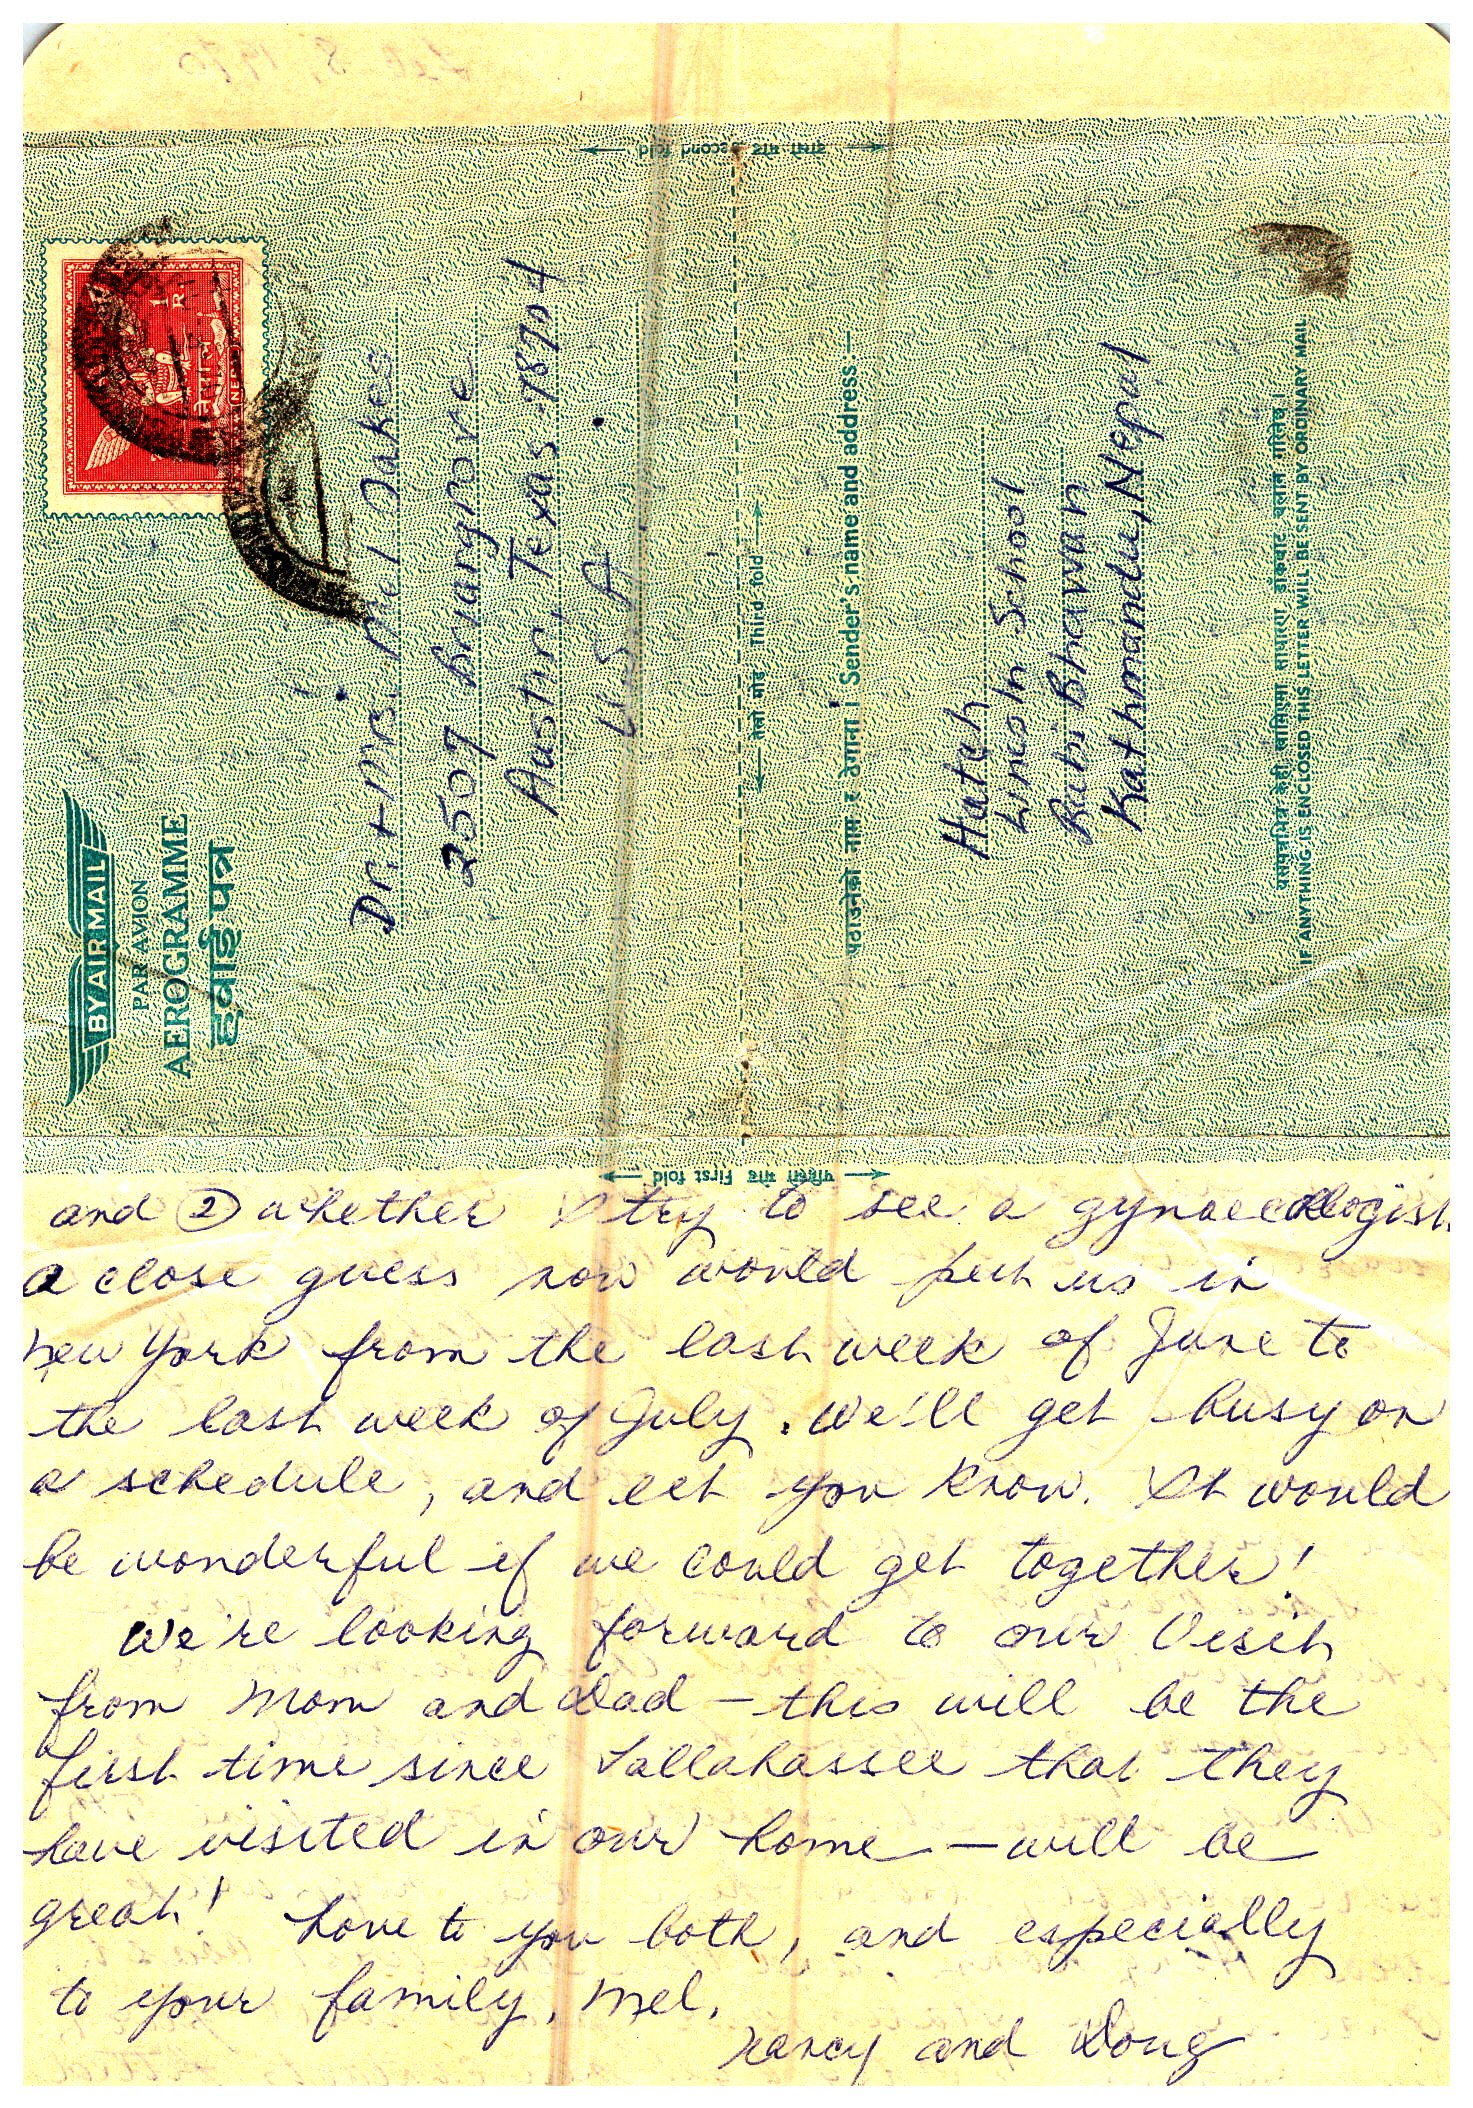 Feb 8, 1970
दोस्रो मोड Second fold
1
R.
नेपाल
NEPAL
BY AIR MAIL
PAR AVION
AEROGRAMME
हवाई पत्र
Dr. + Mrs. Mel Oakes
2507 Briargrove
Austin, Texas 78704
U.S.A.
तेस्रो मोड Third fold
पठाउनेको नाम र ठेगाना । Sender's name and address:—
Hatch
Lincoln School
Rabi Bhawan
Kathmandu, Nepal
यसपत्रभित्र केही खामिएमा साधारण डाँकबाट चलान गरिनेछ ।
IF ANYTHING IS ENCLOSED THIS LETTER WILL BE SENT BY ORDINARY MAIL
पहिलो मोड First fold
and ② whether I try to see a gynaecologist.
a close guess now would put us in
New York from the last week of June to
the last week of July. We'll get busy on
a schedule, and let you know. It would
be wonderful if we could get together!
We're looking forward to our visit
from Mom and Dad — this will be the
first time since Tallahassee that they
have visited in our home — will be
great! Love to you both, and especially
to your family, Mel.
Nancy and Doug